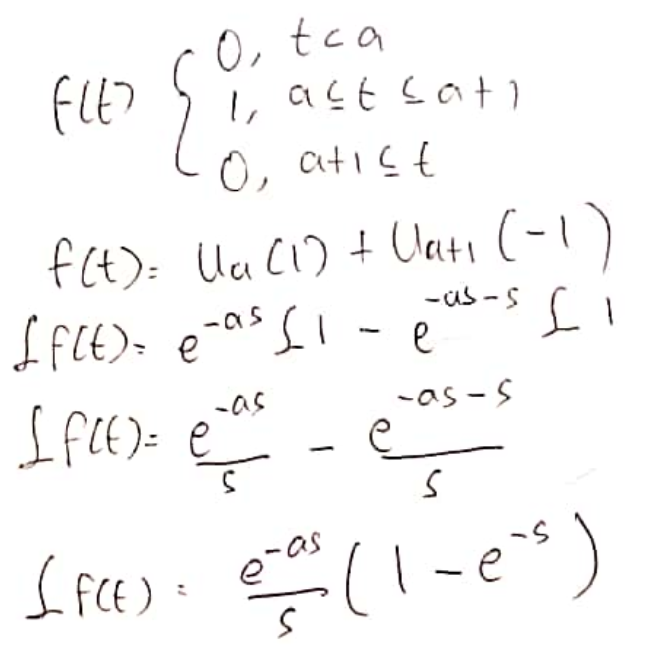 f(t) { 0, t<a
1, a≤t≤a+1
0, a+1≤t
f(t)= Ua(1) + Ua+1(-1)
£f(t)= e^-as £1 - e^-as-s £1
£f(t)= e^-as/s - e^-as-s/s
£f(t)= e^-as/s (1-e^-s)